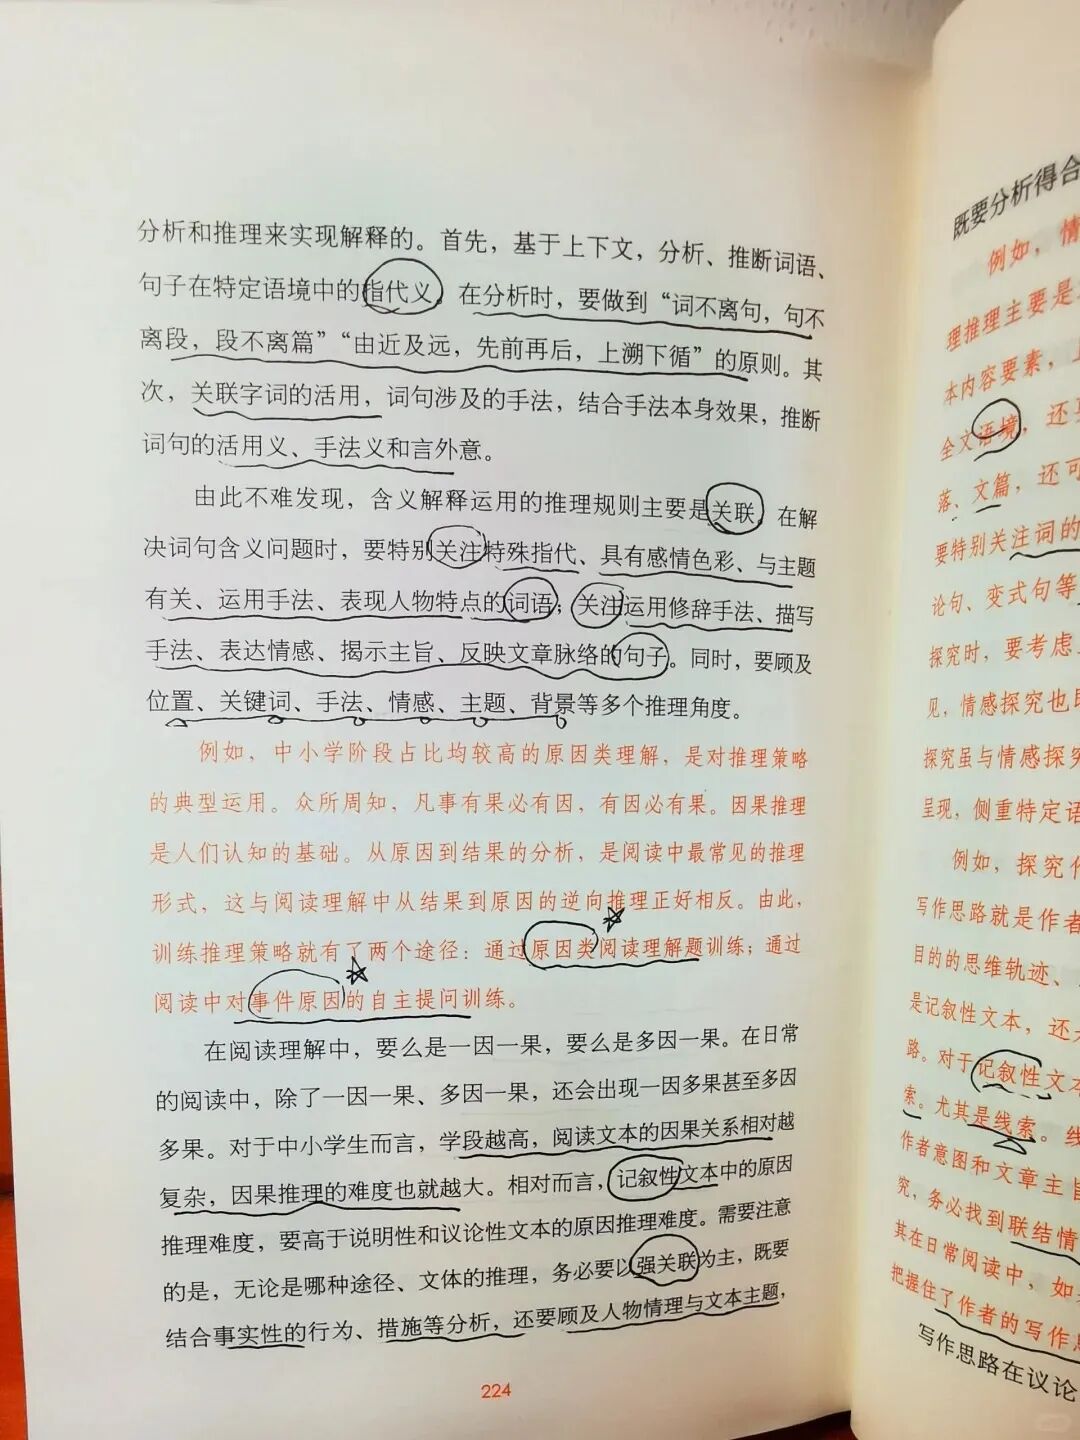 分析和推理来实现解释的。首先，基于上下文，分析、推断词语、
句子在特定语境中的指代义。在分析时，要做到“词不离句，句不
离段，段不离篇”“由近及远，先前再后，上溯下循”的原则。其
次，关联字词的活用，词句涉及的手法，结合手法本身效果，推断
词句的活用义、手法义和言外意。
由此不难发现，含义解释运用的推理规则主要是关联。在解
决词句含义问题时，要特别关注特殊指代、具有感情色彩、与主题
有关、运用手法、表现人物特点的词语；关注运用修辞手法、描写
手法、表达情感、揭示主旨、反映文章脉络的句子。同时，要顾及
位置、关键词、手法、情感、主题、背景等多个推理角度。
例如，中小学阶段占比均较高的原因类理解，是对推理策略
的典型运用。众所周知，凡事有果必有因，有因必有果。因果推理
是人们认知的基础。从原因到结果的分析，是阅读中最常见的推理
形式，这与阅读理解中从结果到原因的逆向推理正好相反。由此，
训练推理策略就有了两个途径：通过原因类阅读理解题训练；通过
阅读中对事件原因的自主提问训练。
在阅读理解中，要么是一因一果，要么是多因一果。在日常
的阅读中，除了一因一果、多因一果，还会出现一因多果甚至多因
多果。对于中小学生而言，学段越高，阅读文本的因果关系相对越
复杂，因果推理的难度也就越大。相对而言，记叙性文本中的原因
推理难度，要高于说明性和议论性文本的原因推理难度。需要注意
的是，无论是哪种途径、文体的推理，务必要以强关联为主，既要
结合事实性的行为、措施等分析，还要顾及人物情理与文本主题，
224
既要分析得合
例如，情
理推理主要是
本内容要素，
全文语境，还
落、文篇，还可
要特别关注词的
论句、变式句等
探究时，要考虑
见，情感探究也
探究虽与情感探究
呈现，侧重特定语
例如，探究作
写作思路就是作者
目的的思维轨迹、
是记叙性文本，还
路。对于记叙性文本
索。尤其是线索。
作者意图和文章主旨
究，务必找到联结情
其在日常阅读中，如
把握住了作者的写作思
写作思路在议论